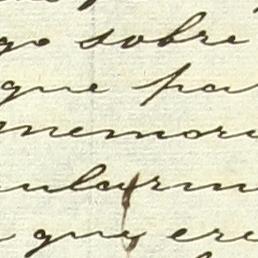 go sobre
que pa
memori
ularm
que ere